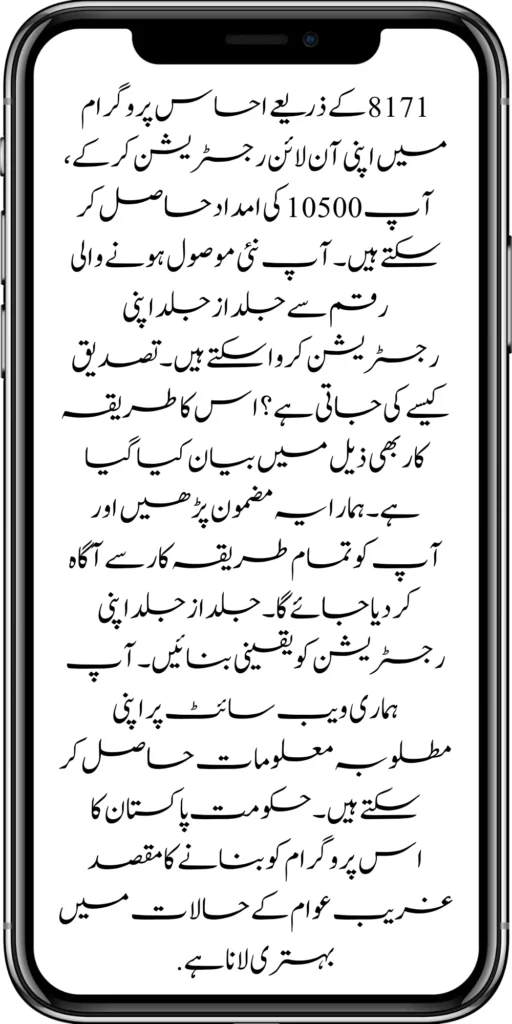 8171 کے ذریعے احساس پروگرام
میں اپنی آن لائن رجسٹریشن کر کے،
آپ 10500 کی امداد حاصل کر
سکتے ہیں۔ آپ نئی موصول ہونے والی
رقم سے جلد از جلد اپنی
رجسٹریشن کروا سکتے ہیں۔ تصدیق
کیسے کی جاتی ہے؟ اس کا طریقہ
کار بھی ذیل میں بیان کیا گیا
ہے۔ ہمارا یہ مضمون پڑھیں اور
آپ کو تمام طریقہ کار سے آگاہ
کر دیا جائے گا۔ جلد از جلد اپنی
رجسٹریشن کو یقینی بنائیں۔ آپ
ہماری ویب سائٹ پر اپنی
مطلوبہ معلومات حاصل کر
سکتے ہیں۔ حکومت پاکستان کا
اس پروگرام کو بنانے کا مقصد
غریب عوام کے حالات میں
بہتری لانا ہے.